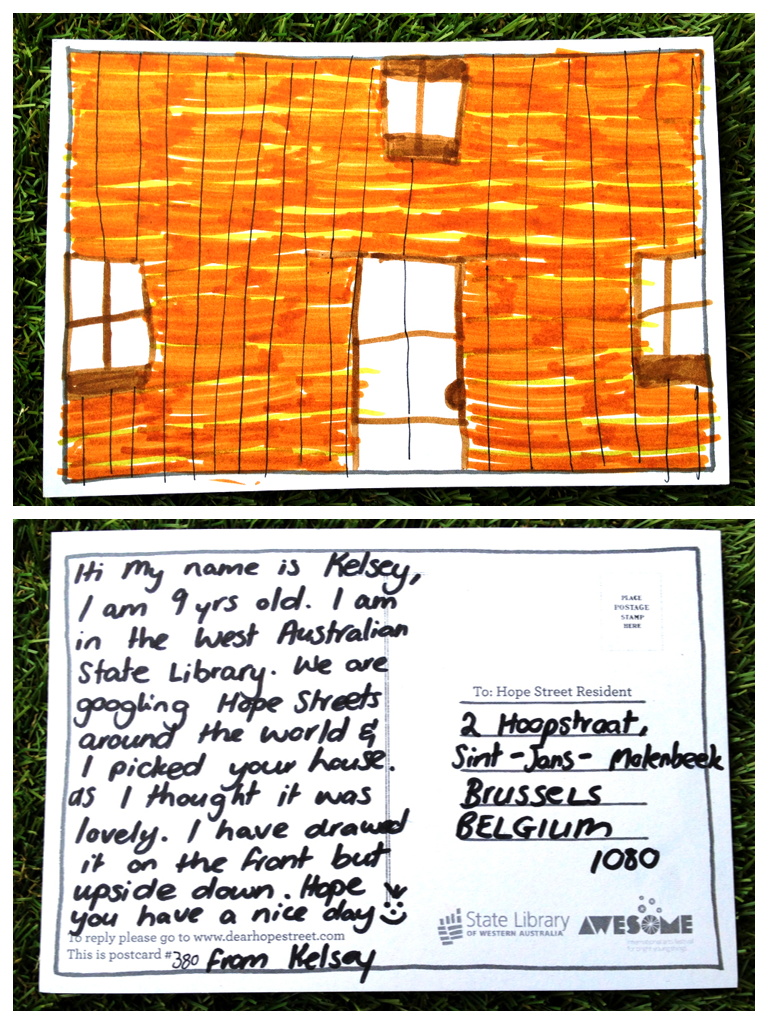 Hi My name is Kelsey,
I am 9 yrs old. I am
in the West Australian
State Library. We are
googling Hope Streets
around the world &
I picked your house.
as I thought it was
lovely. I have drawed
it on the front but
upside down. Hope
you have a nice day
To reply please go to www.dearhopestreet.com
This is postcard #380 from Kelsey
PLACE
POSTAGE
STAMP
HERE
To: Hope Street Resident
2 Hoopstraat,
Sint-Jans-Molenbeek
BRUSSELS
BELGIUM
1080
State Library
OF WESTERN AUSTRALIA
AWESOME
international arts festival
for bright young things